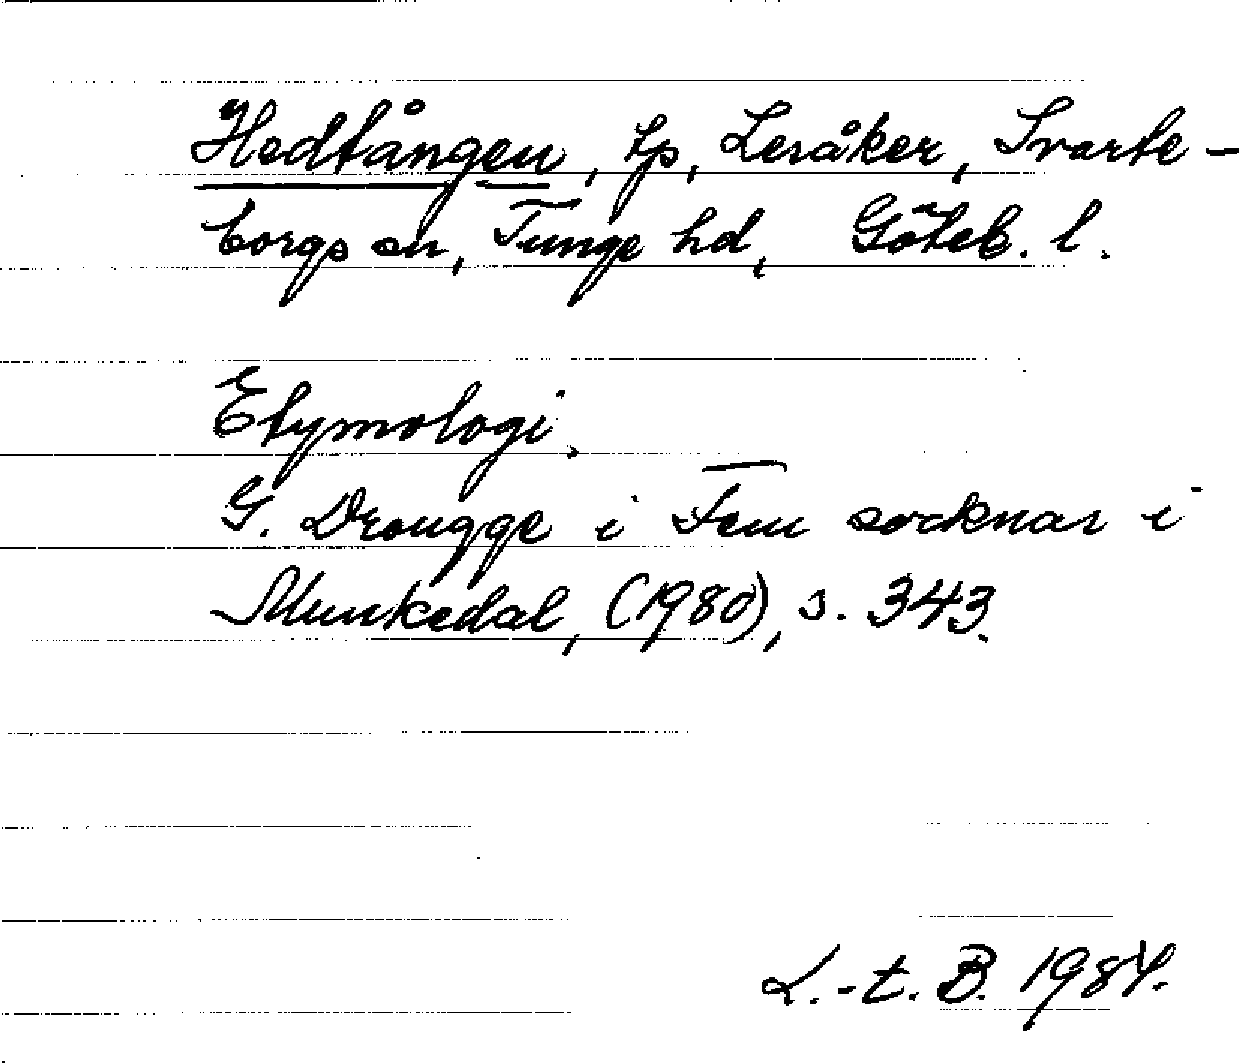 Hedtången, tp, Leråker, Svarte-
borgs sn, Tunge hd, Göteb. l.
Etymologi.
G. Drougge i Fem socknar i
Munkedal, (1980), s. 343.
L.-t. B. 1984.